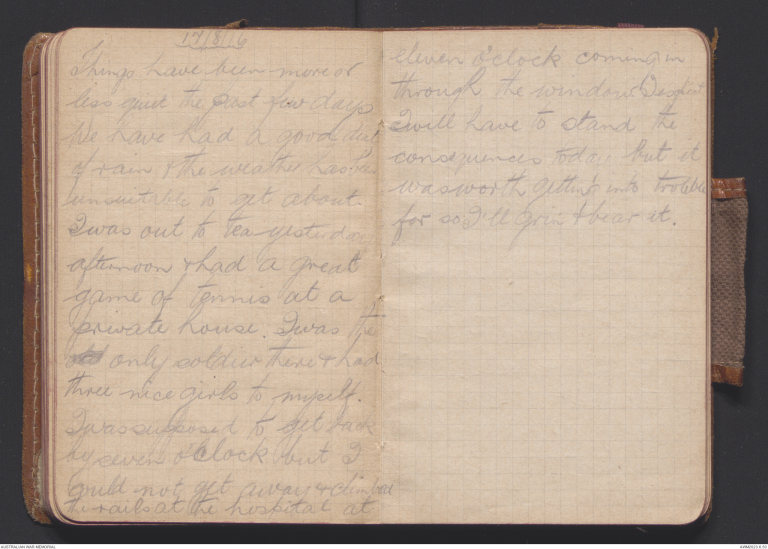 17/8/16
Things have been more or
less quiet the past few days
We have had a good deal
of rain, & the weather has been
unsuitable to get about.
I was out to tea yesterday
afternoon & had a great
game of tennis at a
private house. I was the
only soldier there & had
three nice girls to myself.
I was supposed to get back
by seven o'clock but I
could not get away & climbed
the rails at the hospital at
eleven o'clock coming in
through the window I expect
I will have to stand the
consequences today but it
was worth getting into trouble
for so I'll grin & bear it.
AUSTRALIAN WAR MEMORIAL